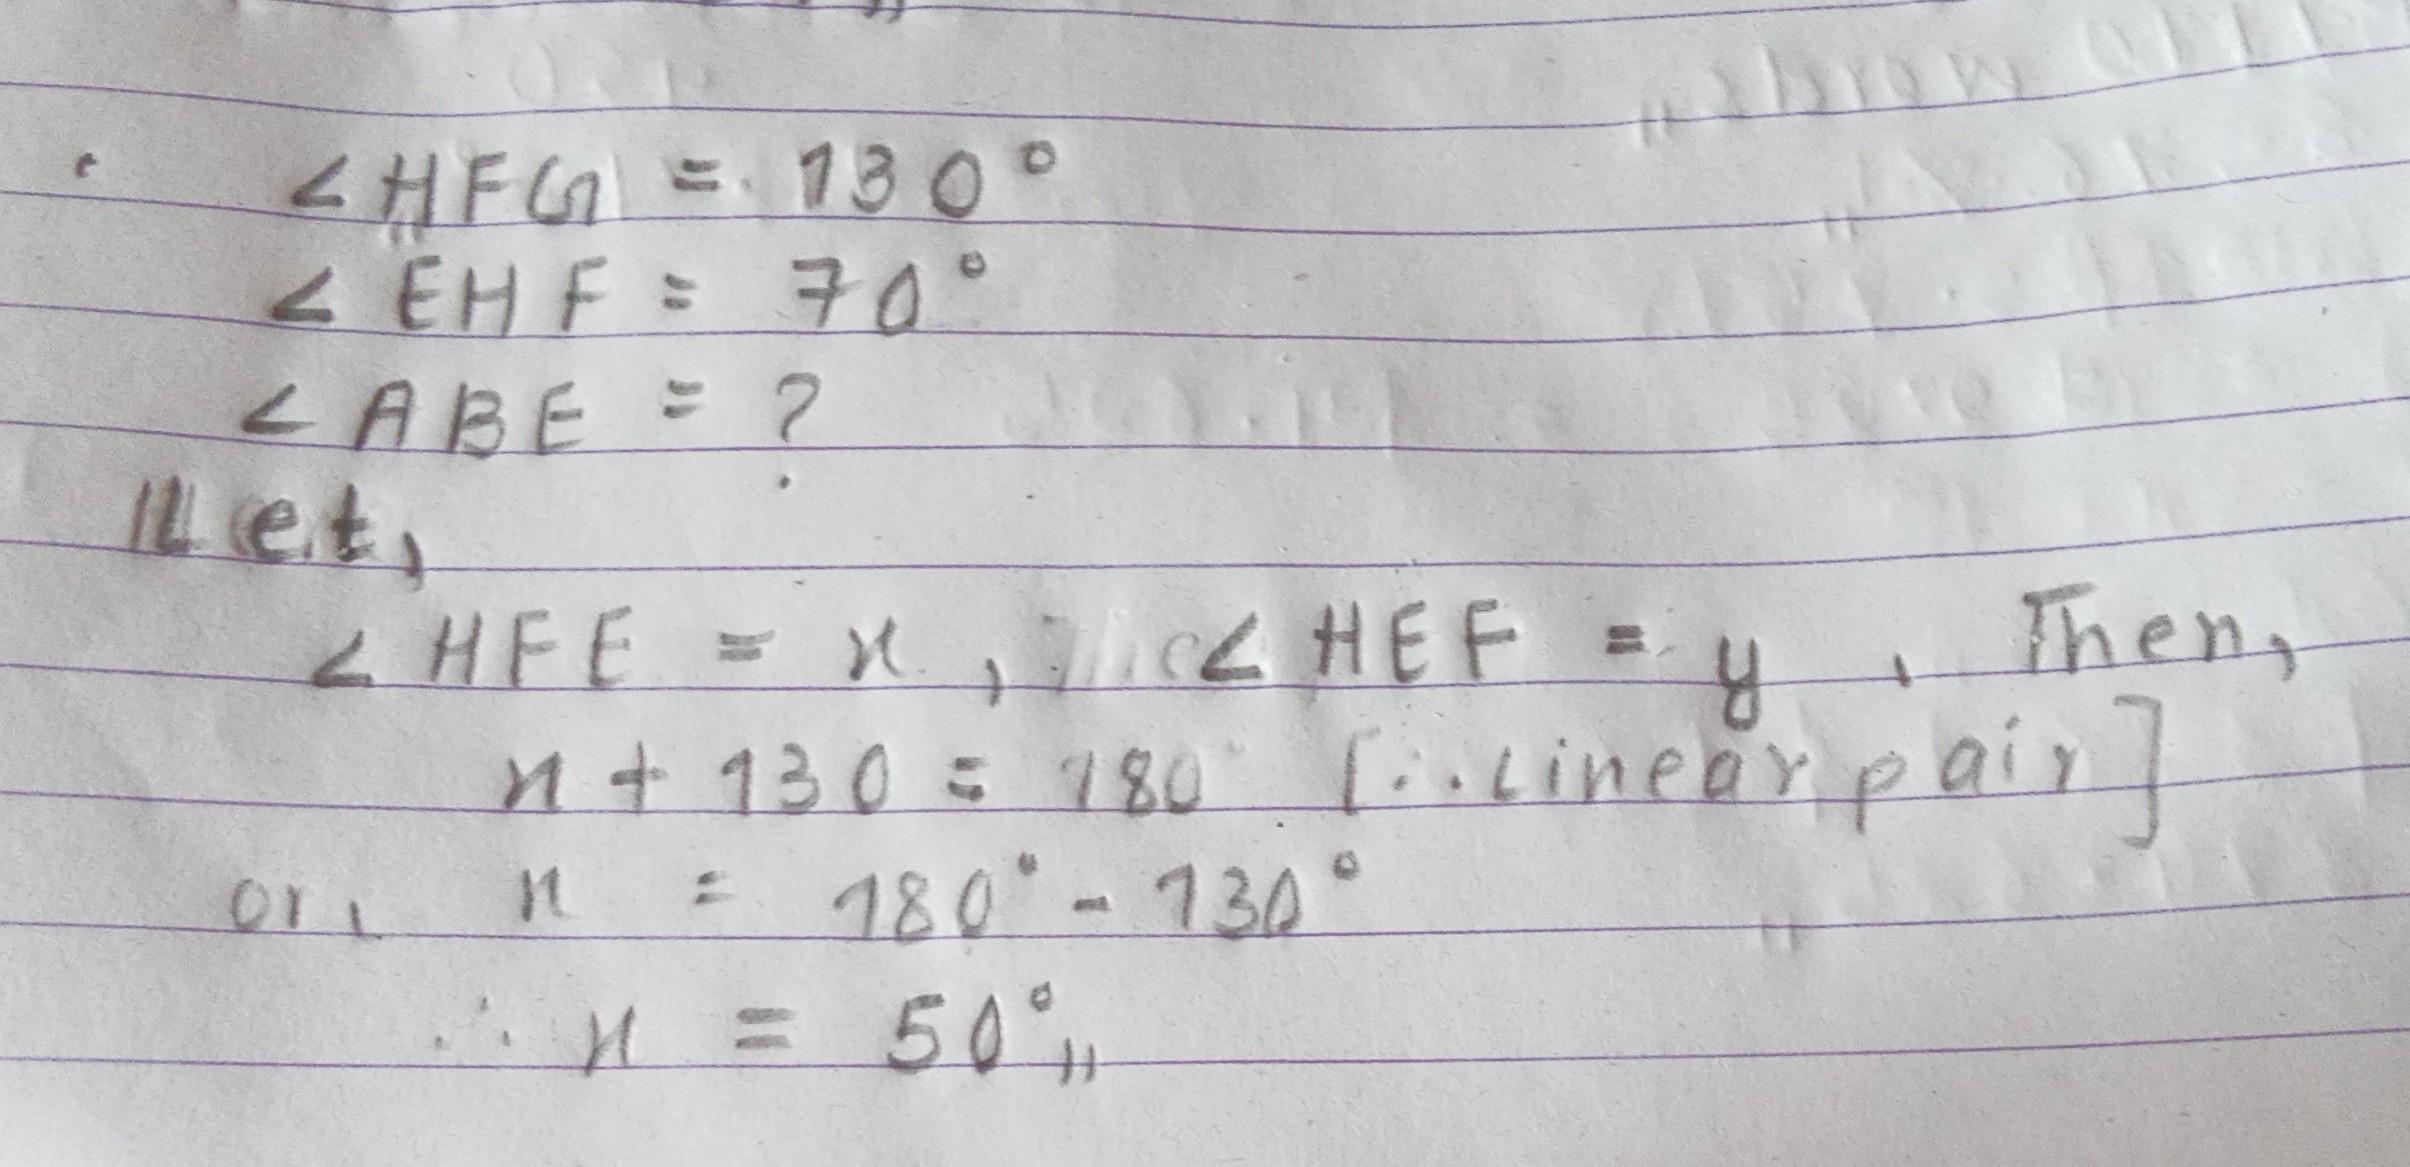 ∠HFG = 130°
∠EHF = 70°
∠ABE = ?
Let,
∠HFE = x, ∠HEF = y, Then,
x + 130 = 180 [∵ Linear pair]
or, x = 180° - 130°
∴ x = 50°,,